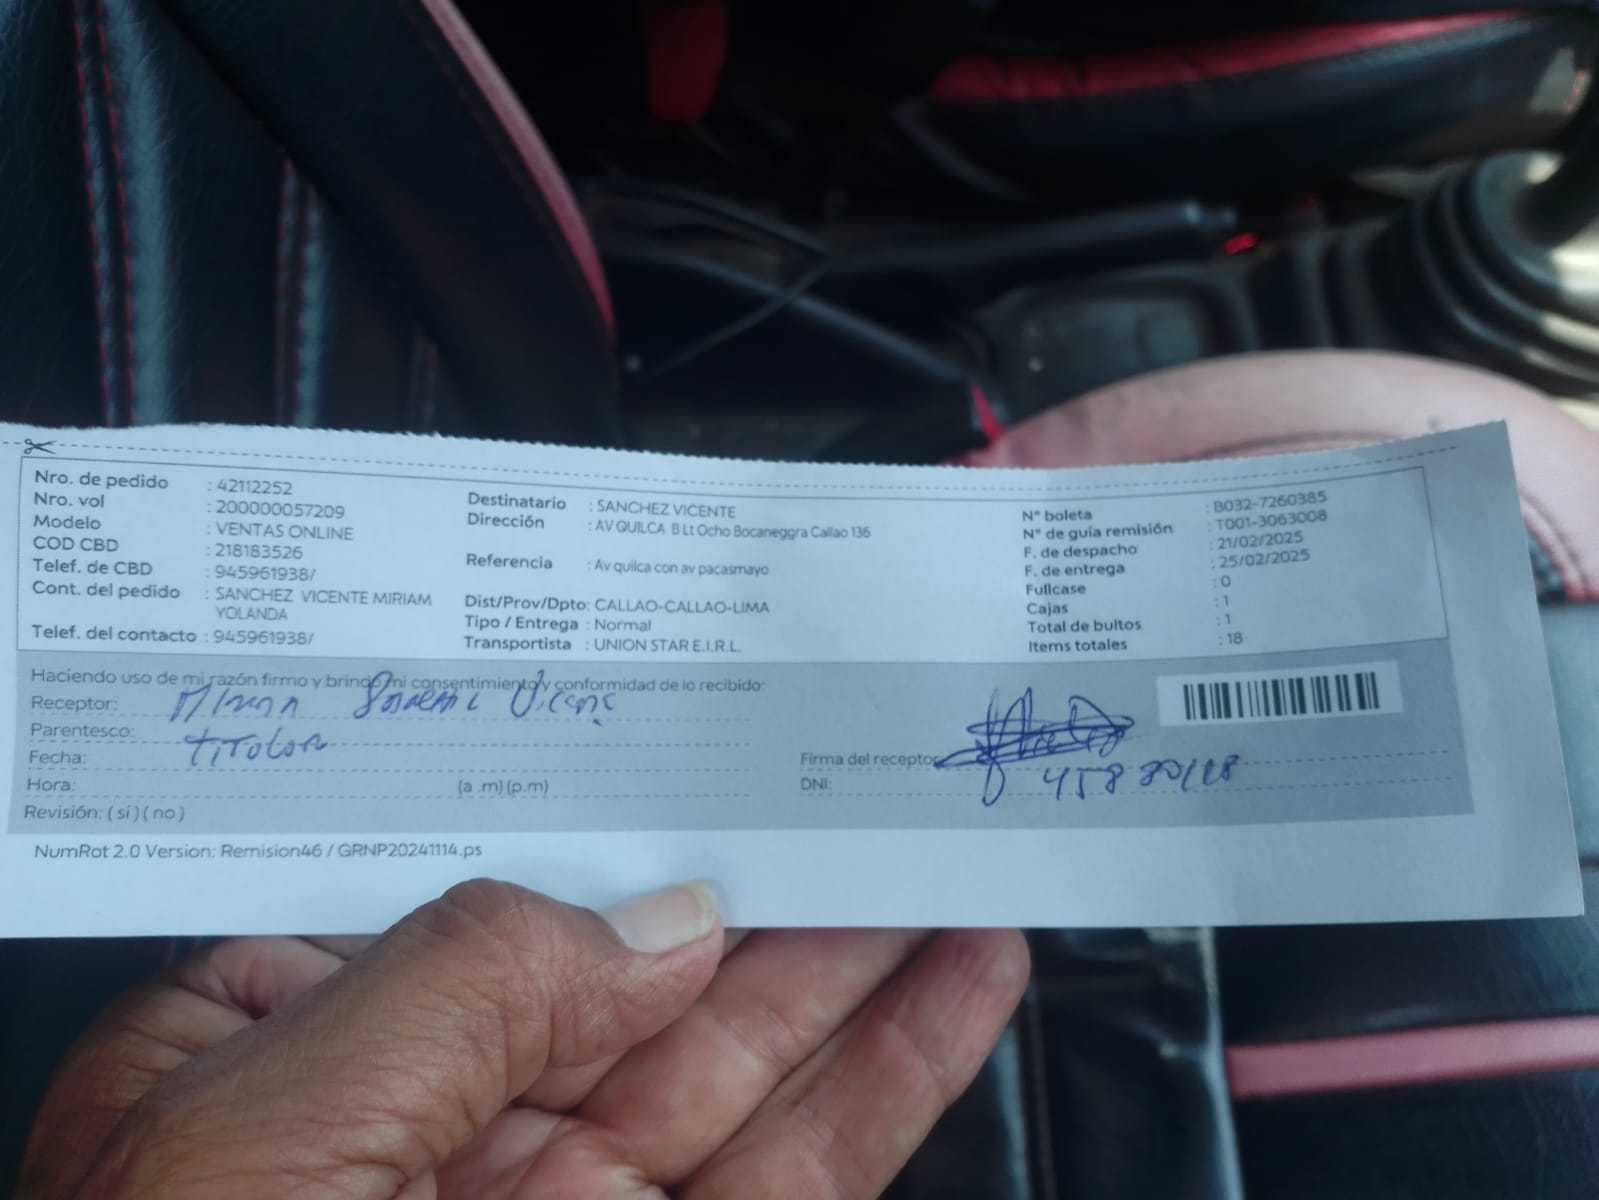 Nro. de pedido : 42112252
Nro. vol : 200000057209
Modelo : VENTAS ONLINE
COD CBD : 218183526
Telef. de CBD : 945961938/
Cont. del pedido : SANCHEZ VICENTE MIRIAM
YOLANDA
Telef. del contacto : 945961938/
Destinatario : SANCHEZ VICENTE
Dirección : AV QUILCA B Lt Ocho Bocaneggra Callao 136
Referencia : Av quilca con av pacasmayo
Dist/Prov/Dpto: CALLAO-CALLAO-LIMA
Tipo / Entrega : Normal
Transportista : UNION STAR E.I.R.L.
N° boleta : B032-7260385
N° de guía remisión : T001-3063008
F. de despacho : 21/02/2025
F. de entrega : 25/02/2025
Fullcase : 0
Cajas : 1
Total de bultos : 1
Items totales : 18
Haciendo uso de mi razón firmo y brindo mi consentimiento y conformidad de lo recibido:
Receptor:
Parentesco: titolar
Fecha:
Hora: (a .m) (p.m)
Revisión: ( si ) ( no )
Firma del receptor
DNI:
NumRot 2.0 Version: Remision46 / GRNP20241114.ps